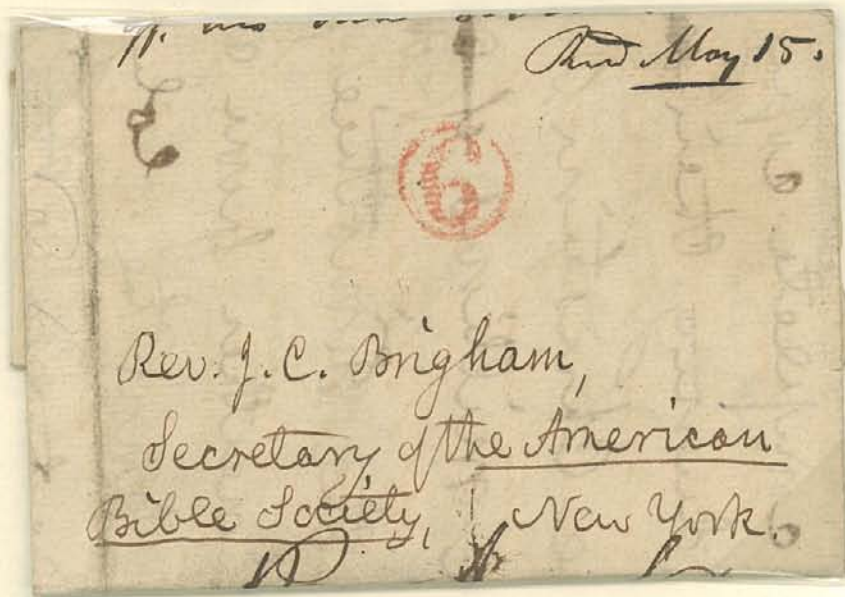 May 15.
6
Rev. J. C. Brigham,
Secretary of the American
Bible Society, New York.